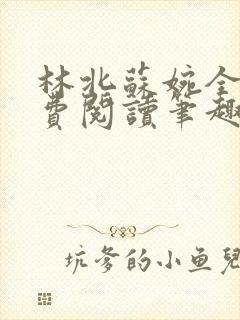 林北蘇婉全
費閱讀筆趣
坑爹的小鱼兒